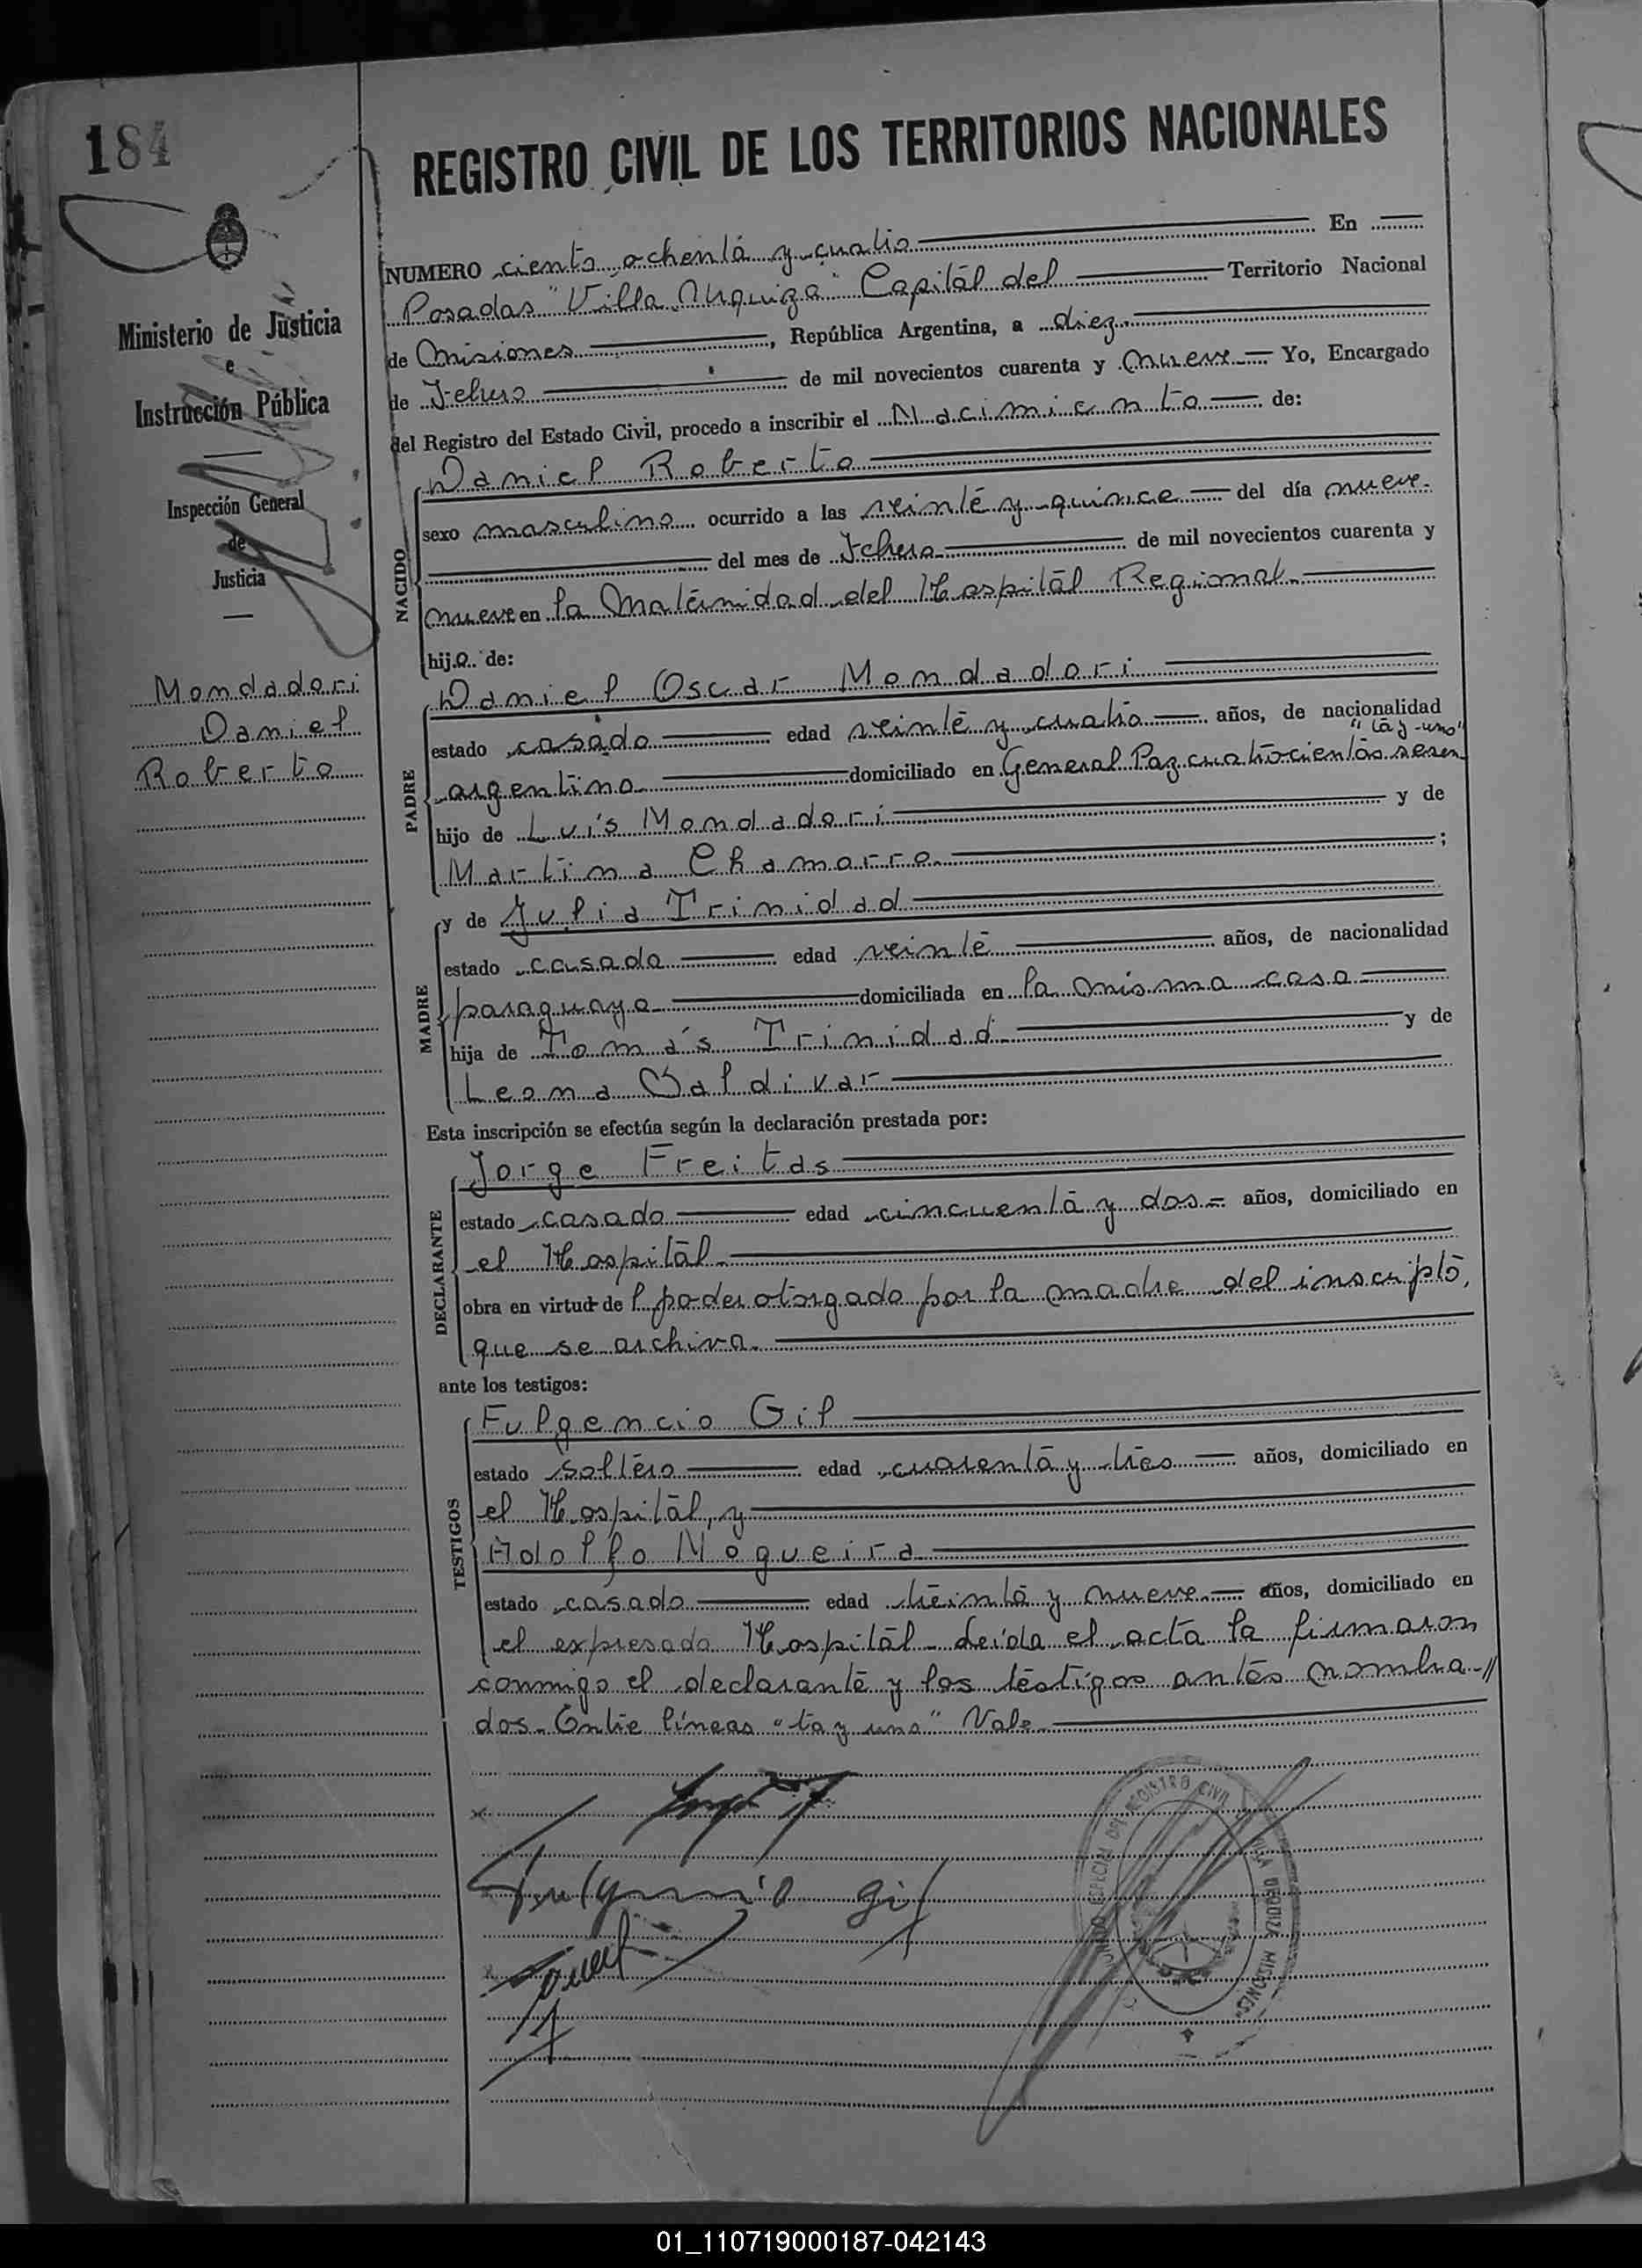 184
REGISTRO CIVIL DE LOS TERRITORIOS NACIONALES
Ministerio de Justicia
e
Instrucción Pública
Inspección General
de
Justicia
Mondadori
Daniel
Roberto
NUMERO ciento ochenta y cuatro En
Posadas "Villa Urquiza" Capital del Territorio Nacional
de Misiones, República Argentina, a diez
de Febrero de mil novecientos cuarenta y nueve Yo, Encargado
del Registro del Estado Civil, procedo a inscribir el Nacimiento de:
NACIDO
Daniel Roberto
sexo masculino ocurrido a las veinte y quince del día nueve
del mes de Febrero de mil novecientos cuarenta y
nueve en la Maternidad del Hospital Regional
hijo de:
PADRE
Daniel Oscar Mondadori
estado casado edad veinte y cuatro años, de nacionalidad
"ta y uno"
argentino domiciliado en General Paz cuatrocientos sesen
hijo de Luís Mondadori y de
Martina Chamorro;
y de Julia Trinidad
MADRE
estado casada edad veinte años, de nacionalidad
paraguaya domiciliada en la misma casa
hija de Tomás Trinidad y de
Leona Baldivar
Esta inscripción se efectúa según la declaración prestada por:
DECLARANTE
Jorge Freitas
estado casado edad cincuenta y dos años, domiciliado en
el Hospital
obra en virtud de l poder otorgado por la madre del inscripto,
que se archiva
ante los testigos:
TESTIGOS
Fulgencio Gil
estado soltero edad cuarenta y tres años, domiciliado en
el Hospital, y
Adolfo Nogueira
estado casado edad treinta y nueve años, domiciliado en
el expresado Hospital - Leída el acta la firmaron
conmigo el declarante y los testigos antes nombra-//
dos. Entre líneas "ta y uno" Vale
Fulgencio Gil
ESPECIAL DEL REGISTRO CIVIL VILLA URQUIZA MISIONES
01_110719000187-042143